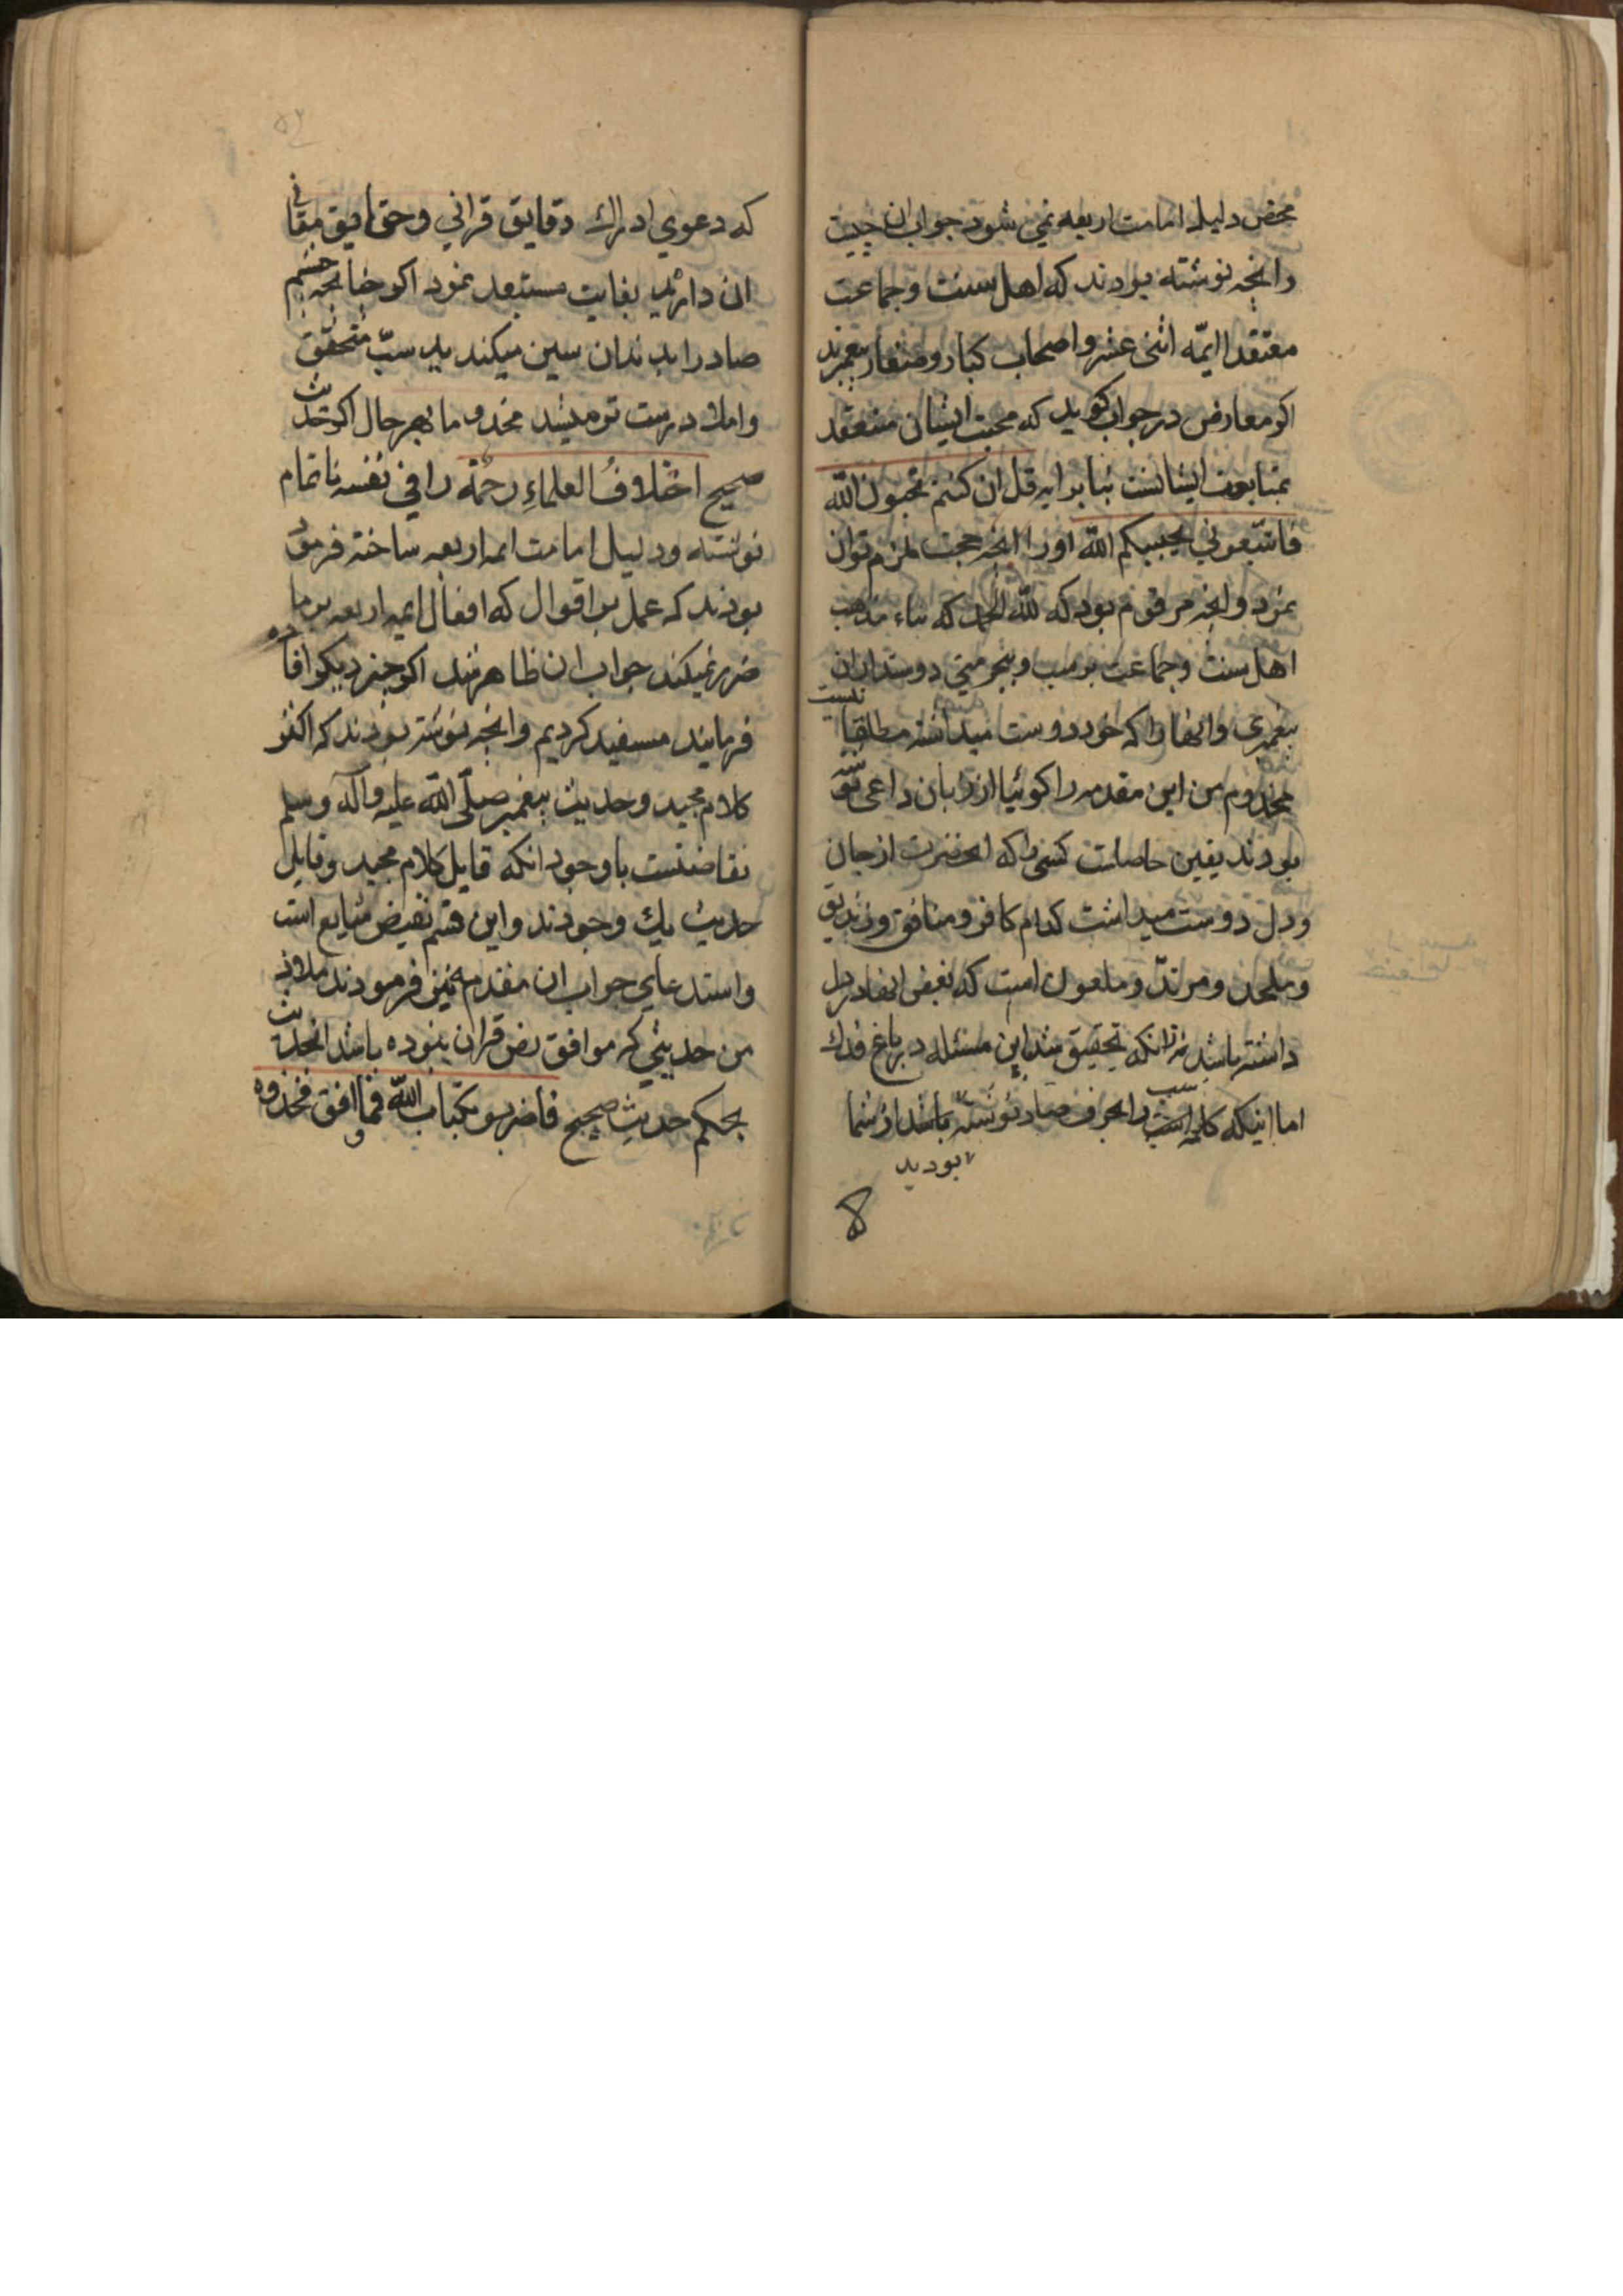 محض دلیل امامت اربعه نمی شود جواب ان چیست
وانچه نوشته بودند که اهل سنت وجماعت
معتقد ایمّه اثنی عشر و اصحاب کبار و صغار پیغمبرند
اکر معارض در جواب کوید که محبت ایشان منعقد
بمتابعت ایشانست بنا بر ایه قل ان کنتم تحبون الله
فاتبعونی یحببکم الله اورا انچه حجت ملزم توان
نمود وانچه مرقوم بود که لله الحمد که بناء مذهب
اهل سنت وجماعت بر سب و بیحرمتی دوستداران
نیست
پیغمبری وانها را که خود دوست میداشته مطلقا
مخدوم من این مقدمه را کوئیا از زبان داعی نوشته
بودند یقین حاصلست کسی را که انحضرت از جان
ودل دوست میداشت کدام کافر ومنافق وزندیق
وملحد ومرتدّ وملعون است که بغض انها در دل
داشته باشد نه انکه تحقیق شد این مسئله در باغ فدک
اما اینکه کلمه سب را بحرف صاد نوشته باشد از شما
بودید
۵۴
که دعوی ادراک دقایق قرانی وحقایق معانی
ان دارید بغایت مستبعد نمود اکر چنانچه چشم
صاد را بدندان سین میکندید سبّ متحقق
واملا درست تر میشد مخدوما بهر حال اکر حدیث
صحیح اختلافُ العلماءِ رحمُة را فی نفسه ناتمام
نوشته ودلیل امامت ایمه اربعه ساخته فرموده
بودند که عمل بر اقوال که افعال ایمه اربعه بر ما
ضرر نمیکند جواب ان ظاهر شد اکر چیز دیکر افاده
فرمایند مستفید کردیم وانچه نوشته بودند که اکثر
کلام مجید وحدیث پیغمبر صلّی الله علیه وآله وسلم
نقاضتست باوجود انکه قایل کلام مجید وقایل
حدیث یک وجودند واین قسم نقیض شایع است
واستدعای جواب ان مقدمه نیز فرمودند ملاذ
من حدیثی که موافق نص قران نبوده باشد انحدیث
بحکم حدیثِ صحیح فاضربو بکتاب الله فما وافق فخذوه